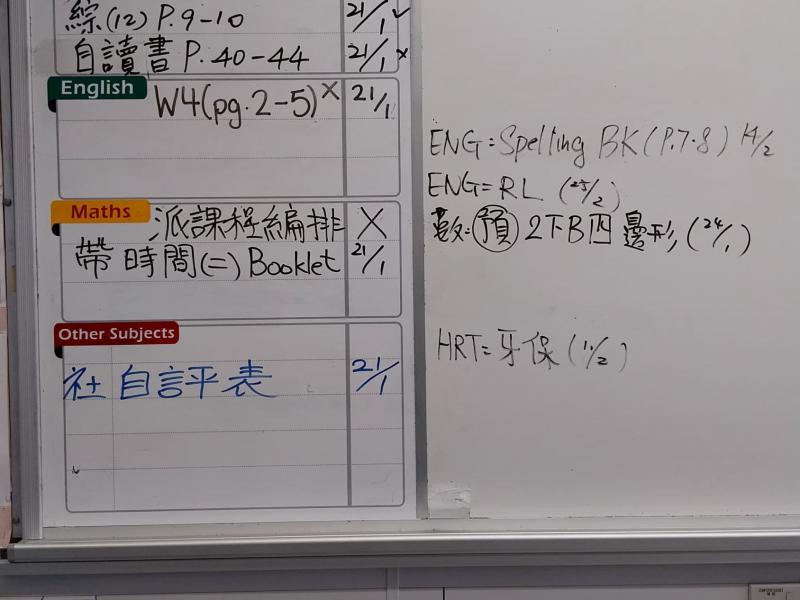 綜(12) P.9-10 21/1 ✓
自讀書 P.40-44 21/1 ×
English
W4(pg.2-5) × 21/1
Maths
派課程編排 ×
帶時間(二) Booklet 21/1
Other Subjects
社 自評表 21/1
ENG=Spelling BK(P.7-8) 14/2
ENG=RL (25/2)
數=預 2下B四邊形 (24/1)
HRT=牙保 (11/2)